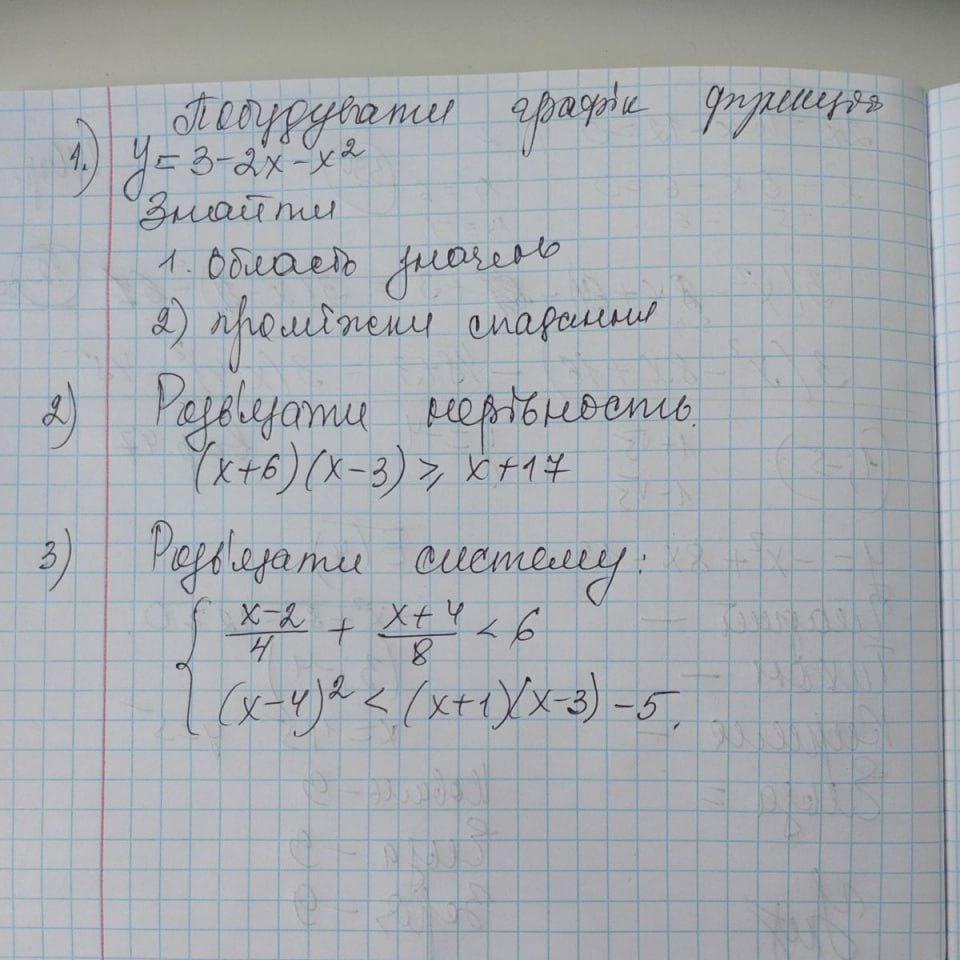 Побудувати графік функції
1.) y = 3 - 2x - x²
Знайти
1. Область значень
2) проміжки спадання
2) Розв'язати нерівность.
(x+6)(x-3) ⩾ x+17
3) Розв'язати систему:
{ (x-2)/4 + (x+4)/8 < 6
(x-4)² < (x+1)(x-3) - 5.